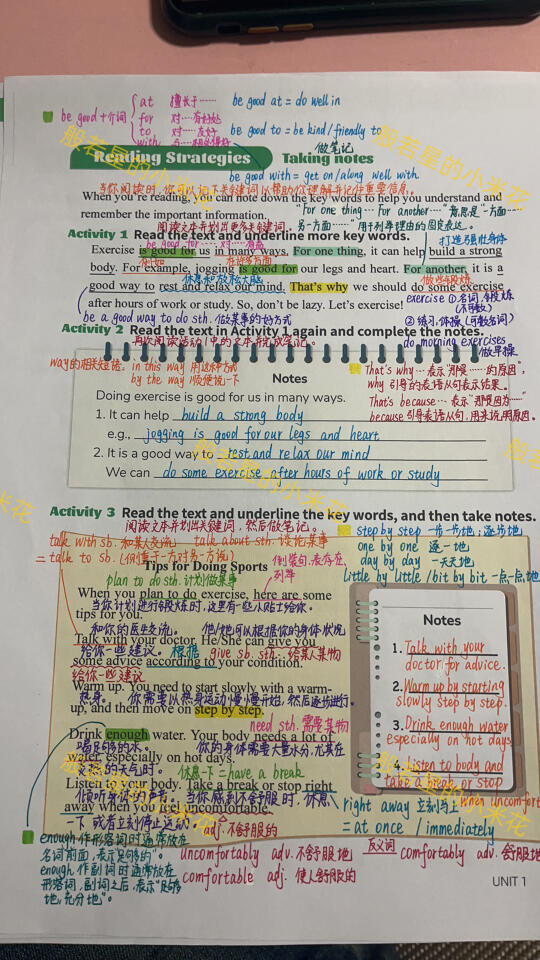 be good + 介词
at 擅长于…… be good at = do well in
for 对……有好处
to 对……友好 be good to = be kind / friendly to
with 与……相处得好
be good with = get on / along well with
Reading Strategies Taking notes
做笔记
当你阅读时,你可以记下关键词以帮助你理解并记住重要信息。
When you're reading, you can note down the key words to help you understand and
remember the important information.
"For one thing… For another……"意思是"一方面……
另一方面……"用于列举理由的固定表达。
阅读文本并划出更多关键词。
Activity 1 Read the text and underline more key words.
be good for…… 对……有益
在许多方面
打造与强壮身体
Exercise is good for us in many ways. For one thing, it can help build a strong
body. For example, jogging is good for our legs and heart. For another, it is a
例如
休息和放松大脑
做些锻炼
good way to rest and relax our mind. That's why we should do some exercise
after hours of work or study. So, don't be lazy. Let's exercise!
be a good way to do sth. 做某事的好方式
exercise ①名词,锻炼
(不可数)
②练习,体操(可数名词)
do morning exercises
做早操
Activity 2 Read the text in Activity 1 again and complete the notes.
再次阅读活动1中的文本并完成笔记。
way的相关短语: in this way 用这种方式
by the way 顺便说一下
That's why… 表示"那是……的原因",
why 引导的表语从句表示结果。
That's because… 表示"那是因为……"
because引导表语从句,用来说明原因。
Notes
Doing exercise is good for us in many ways.
1. It can help build a strong body
e.g., jogging is good for our legs and heart
2. It is a good way to rest and relax our mind
We can do some exercise after hours of work or study
Activity 3 Read the text and underline the key words, and then take notes.
阅读文本并划出关键词,然后做笔记。
talk with sb. 和某人交流 talk about sth. 谈论某事
= talk to sb. (侧重于一方对另一方说)
step by step 一步一步地;逐步地
one by one 逐一地
day by day 一天天地
little by little / bit by bit 一点一点地
Tips for Doing Sports
倒装句,表存在,
列举
plan to do sth. 计划做某事
When you plan to do exercise, here are some
当你计划进行锻炼时,这里有一些小贴士给你。
tips for you.
和你的医生交流。 他/她可以根据你的身体状况
Talk with your doctor. He/She can give you
给你一些建议。 根据 give sb. sth. 给某人某物
some advice according to your condition.
给你一些建议
Warm up. You need to start slowly with a warm-
热身。 你需要以热身运动慢慢开始,然后逐步进行。
up, and then move on step by step.
need sth. 需要某物
Drink enough water. Your body needs a lot of
喝足够的水。 你的身体需要大量水分,尤其在
water, especially on hot days.
炎热的天气时。 休息一下 = have a break
Listen to your body. Take a break or stop right
倾听身体的声音。当你感到不舒服时,休息
away when you feel uncomfortable.
一下或者立刻停止运动。 adj. 不舒服的
Notes
1. Talk with your
doctor for advice.
2. Warm up by starting
slowly step by step.
3. Drink enough water
especially on hot days
4. Listen to body and
take a break or stop
when uncomfort
right away 立刻马上
= at once / immediately
enough作形容词时通常放在
名词前面,表示"足够的"。
enough作副词时通常放在
形容词,副词之后,表示"足够
地,充分地"。
uncomfortably adv. 不舒服地 反义词 comfortably adv. 舒服地
comfortable adj. 使人舒服的
UNIT 1
般若星的小米花
般若星的小米花
般若星的小米花